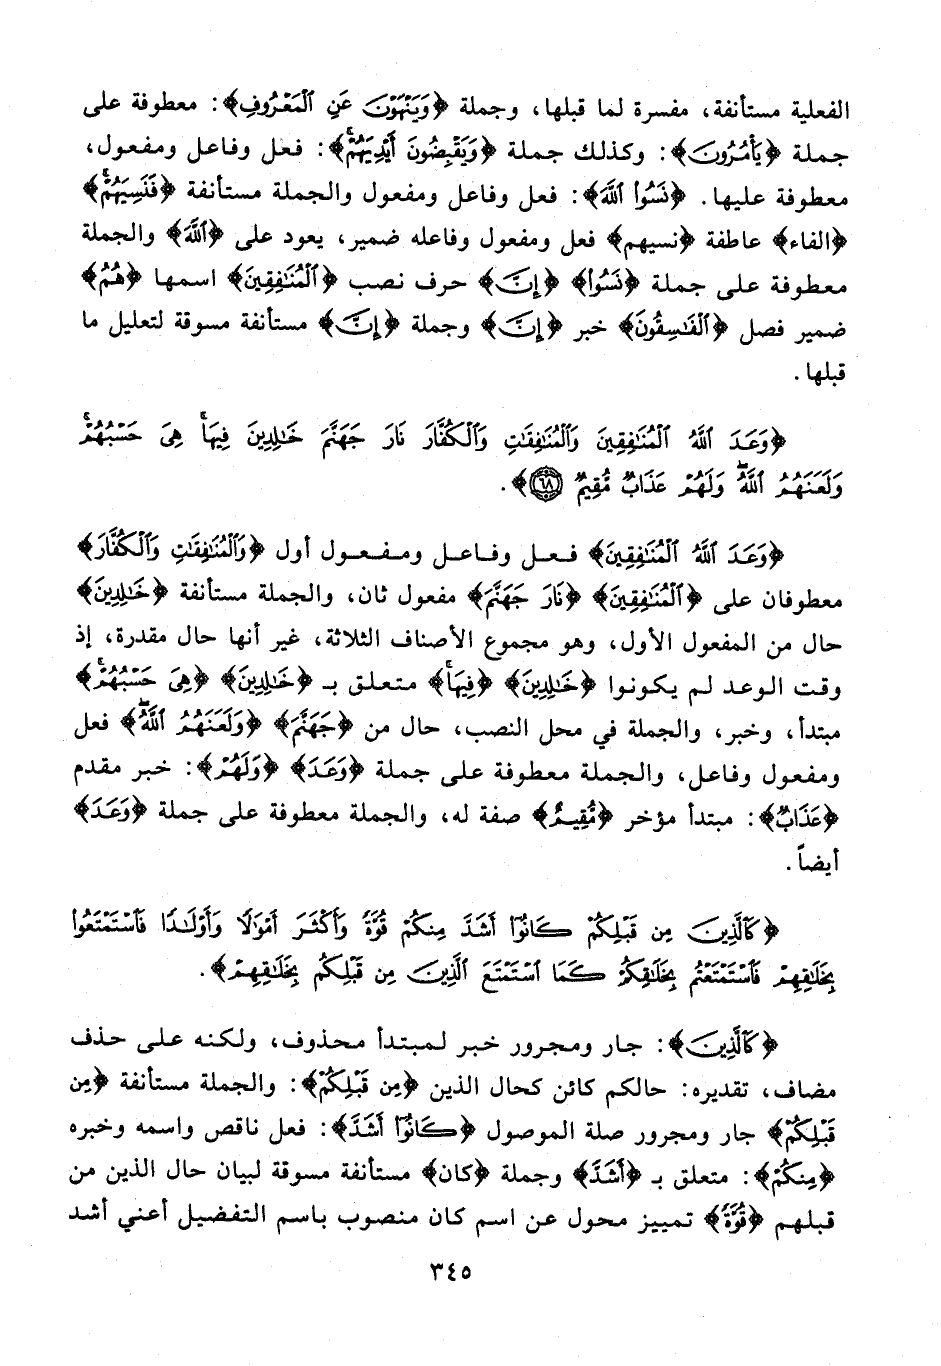 الفعلية مستأنفة، مفسرة لما قبلها، وجملة ﴿وَيَنْهَوْنَ عَنِ الْمَعْرُوفِ﴾: معطوفة على
جملة ﴿يَأْمُرُونَ﴾: وكذلك جملة ﴿وَيَقْبِضُونَ أَيْدِيَهُمْ﴾: فعل وفاعل ومفعول،
معطوفة عليها. ﴿نَسُوا اللَّهَ﴾: فعل وفاعل ومفعول والجملة مستأنفة ﴿فَنَسِيَهُمْ﴾
﴿الفاء﴾ عاطفة ﴿نسيهم﴾ فعل ومفعول وفاعله ضمير، يعود على ﴿اللَّهَ﴾ والجملة
معطوفة على جملة ﴿نَسُوا﴾ ﴿إِنَّ﴾ حرف نصب ﴿الْمُنَافِقِينَ﴾ اسمها ﴿هُمُ﴾
ضمير فصل ﴿الْفَاسِقُونَ﴾ خبر ﴿إِنَّ﴾ وجملة ﴿إِنَّ﴾ مستأنفة مسوقة لتعليل ما
قبلها.
﴿وَعَدَ اللَّهُ الْمُنَافِقِينَ وَالْمُنَافِقَاتِ وَالْكُفَّارَ نَارَ جَهَنَّمَ خَالِدِينَ فِيهَا هِيَ حَسْبُهُمْ
وَلَعَنَهُمُ اللَّهُ وَلَهُمْ عَذَابٌ مُّقِيمٌ ٦٨﴾.
﴿وَعَدَ اللَّهُ الْمُنَافِقِينَ﴾ فعل وفاعل ومفعول أول ﴿وَالْمُنَافِقَاتِ وَالْكُفَّارَ﴾
معطوفان على ﴿الْمُنَافِقِينَ﴾ ﴿نَارَ جَهَنَّمَ﴾ مفعول ثان، والجملة مستأنفة ﴿خَالِدِينَ﴾
حال من المفعول الأول، وهو مجموع الأصناف الثلاثة، غير أنها حال مقدرة، إذ
وقت الوعد لم يكونوا ﴿خَالِدِينَ﴾ ﴿فِيهَا﴾ متعلق بـ ﴿خَالِدِينَ﴾ ﴿هِيَ حَسْبُهُمْ﴾
مبتدأ، وخبر، والجملة في محل النصب، حال من ﴿جَهَنَّمَ﴾ ﴿وَلَعَنَهُمُ اللَّهُ﴾ فعل
ومفعول وفاعل، والجملة معطوفة على جملة ﴿وَعَدَ﴾ ﴿وَلَهُمْ﴾: خبر مقدم
﴿عَذَابٌ﴾: مبتدأ مؤخر ﴿مُّقِيمٌ﴾ صفة له، والجملة معطوفة على جملة ﴿وَعَدَ﴾
أيضاً.
﴿كَالَّذِينَ مِن قَبْلِكُمْ كَانُوا أَشَدَّ مِنكُمْ قُوَّةً وَأَكْثَرَ أَمْوَالًا وَأَوْلَادًا فَاسْتَمْتَعُوا
بِخَلَاقِهِمْ فَاسْتَمْتَعْتُم بِخَلَاقِكُمْ كَمَا اسْتَمْتَعَ الَّذِينَ مِن قَبْلِكُم بِخَلَاقِهِمْ﴾.
﴿كَالَّذِينَ﴾: جار ومجرور خبر لمبتدأ محذوف، ولكنه على حذف
مضاف، تقديره: حالكم كائن كحال الذين ﴿مِن قَبْلِكُمْ﴾: والجملة مستأنفة ﴿مِن
قَبْلِكُمْ﴾ جار ومجرور صلة الموصول ﴿كَانُوا أَشَدَّ﴾: فعل ناقص واسمه وخبره
﴿مِنكُمْ﴾: متعلق بـ ﴿أَشَدَّ﴾ وجملة ﴿كان﴾ مستأنفة مسوقة لبيان حال الذين من
قبلهم ﴿قُوَّةً﴾ تمييز محول عن اسم كان منصوب باسم التفضيل أعني أشد
٣٤٥